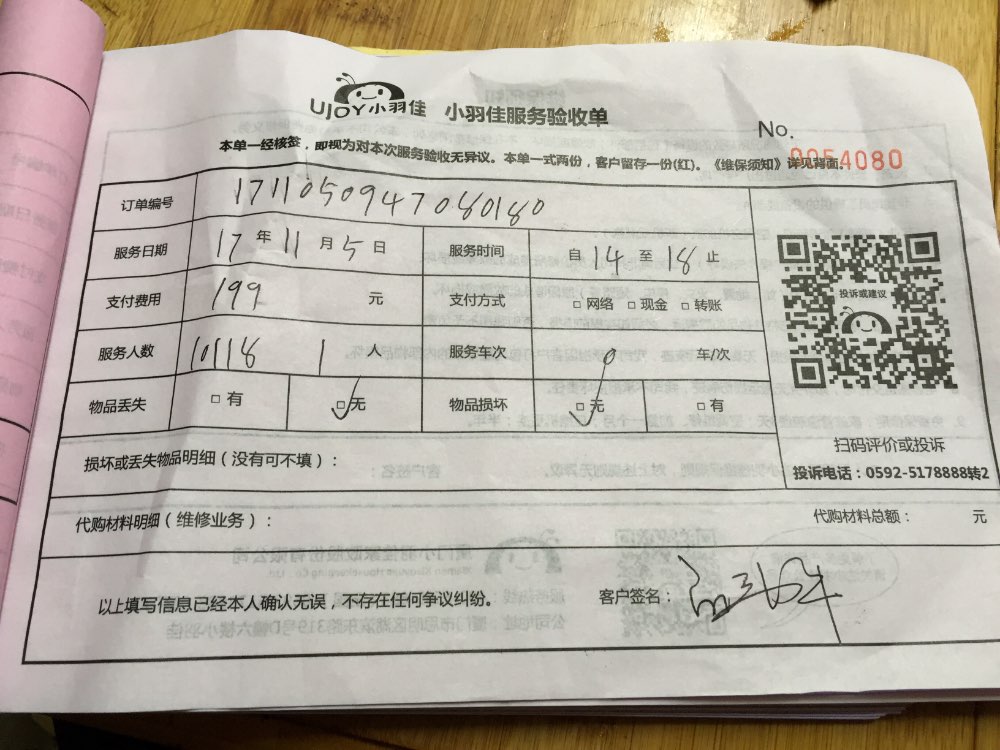 UJOY小羽佳 小羽佳服务验收单
No.
0054080
本单一经核签，即视为对本次服务验收无异议。本单一式两份，客户留存一份(红)。《维保须知》详见背面。
订单编号 1711050947080180
服务日期 17 年 11 月 5 日 服务时间 自 14 至 18 止
支付费用 199 元 支付方式 □ 网络 □ 现金 □ 转账
服务人数 10118 1 人 服务车次 0 车/次
物品丢失 □ 有 □ 无 物品损坏 □ 无 □ 有
投诉或建议
扫码评价或投诉
投诉电话：0592-5178888转2
损坏或丢失物品明细（没有可不填）：
代购材料明细（维修业务）： 代购材料总额： 元
以上填写信息已经本人确认无误，不存在任何争议纠纷。 客户签名：